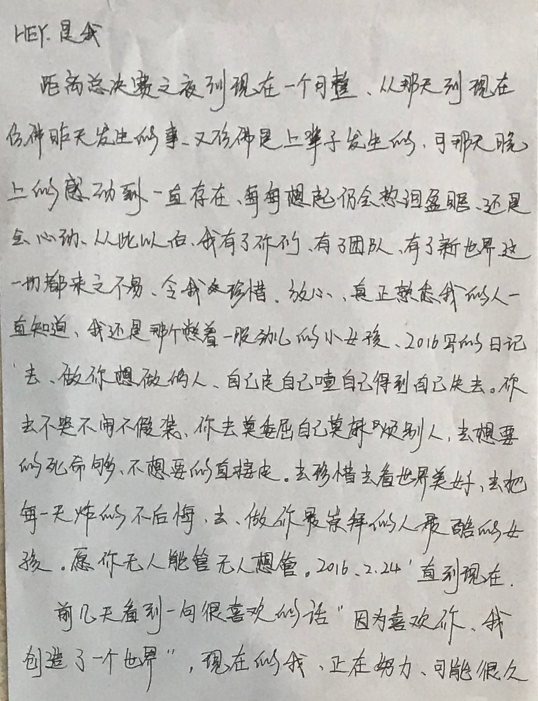 HEY. 是我
距离总决赛之夜到现在一个月整、从那天到现在
仿佛昨天发生的事、又仿佛是上辈子发生的、可那天晚
上的感动到一直存在、每每想起仍会热泪盈眶、还是
会心动、从此以后、我有了你们、有了团队、有了新世界这
一切都来之不易、令我更珍惜、放心、真正熟悉我的人一
直知道、我还是那个憋着一股劲儿的小女孩、2016写的日记
"去、做你想做的人、自己走自己噎自己得到自己失去。你
去不哭不闹不假装、你去莫委屈自己莫麻烦别人、去想要
的死命够、不想要的直接走。去珍惜去看世界美好、去把
每一天炸的不后悔、去、做你最崇拜的人最酷的女
孩。愿你无人能管无人想管。2016、2.24"直到现在.
前几天看到一句很喜欢的话"因为喜欢你、我
创造了一个世界",现在的我、正在努力、可能很久